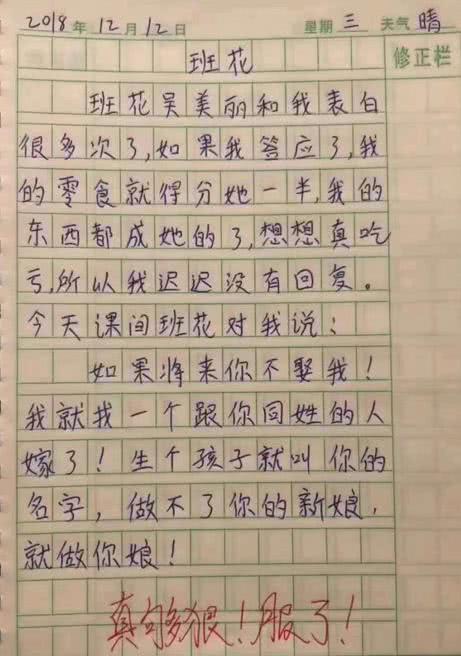 2018年12月12日 星期三 天气晴
修正栏
班花
班花吴美丽和我表白
很多次了,如果我答应了,我
的零食就得分她一半,我的
东西都成她的了,想想真吃
亏,所以我迟迟没有回复。
今天课间班花对我说:
如果将来你不娶我!
我就找一个跟你同姓的人
嫁了!生个孩子就叫你的
名字,做不了你的新娘,
就做你娘!
真够狠!服了!